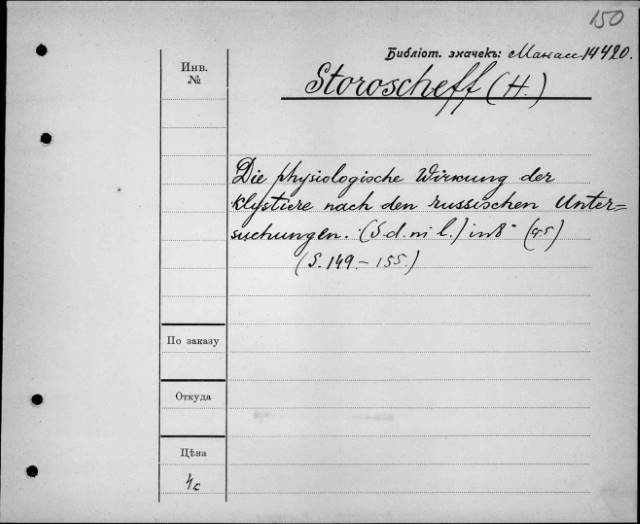 150
Библіот. значекъ: Макан 14420.
Инв.
№
Storoscheff (H.)
Die physiologische Wirkung der
Klystiere nach den russischen Unter=
suchungen. (S. d. ni l.) in 8° (95)
(S. 149.-155.)
По заказу
Откуда
Цѣна